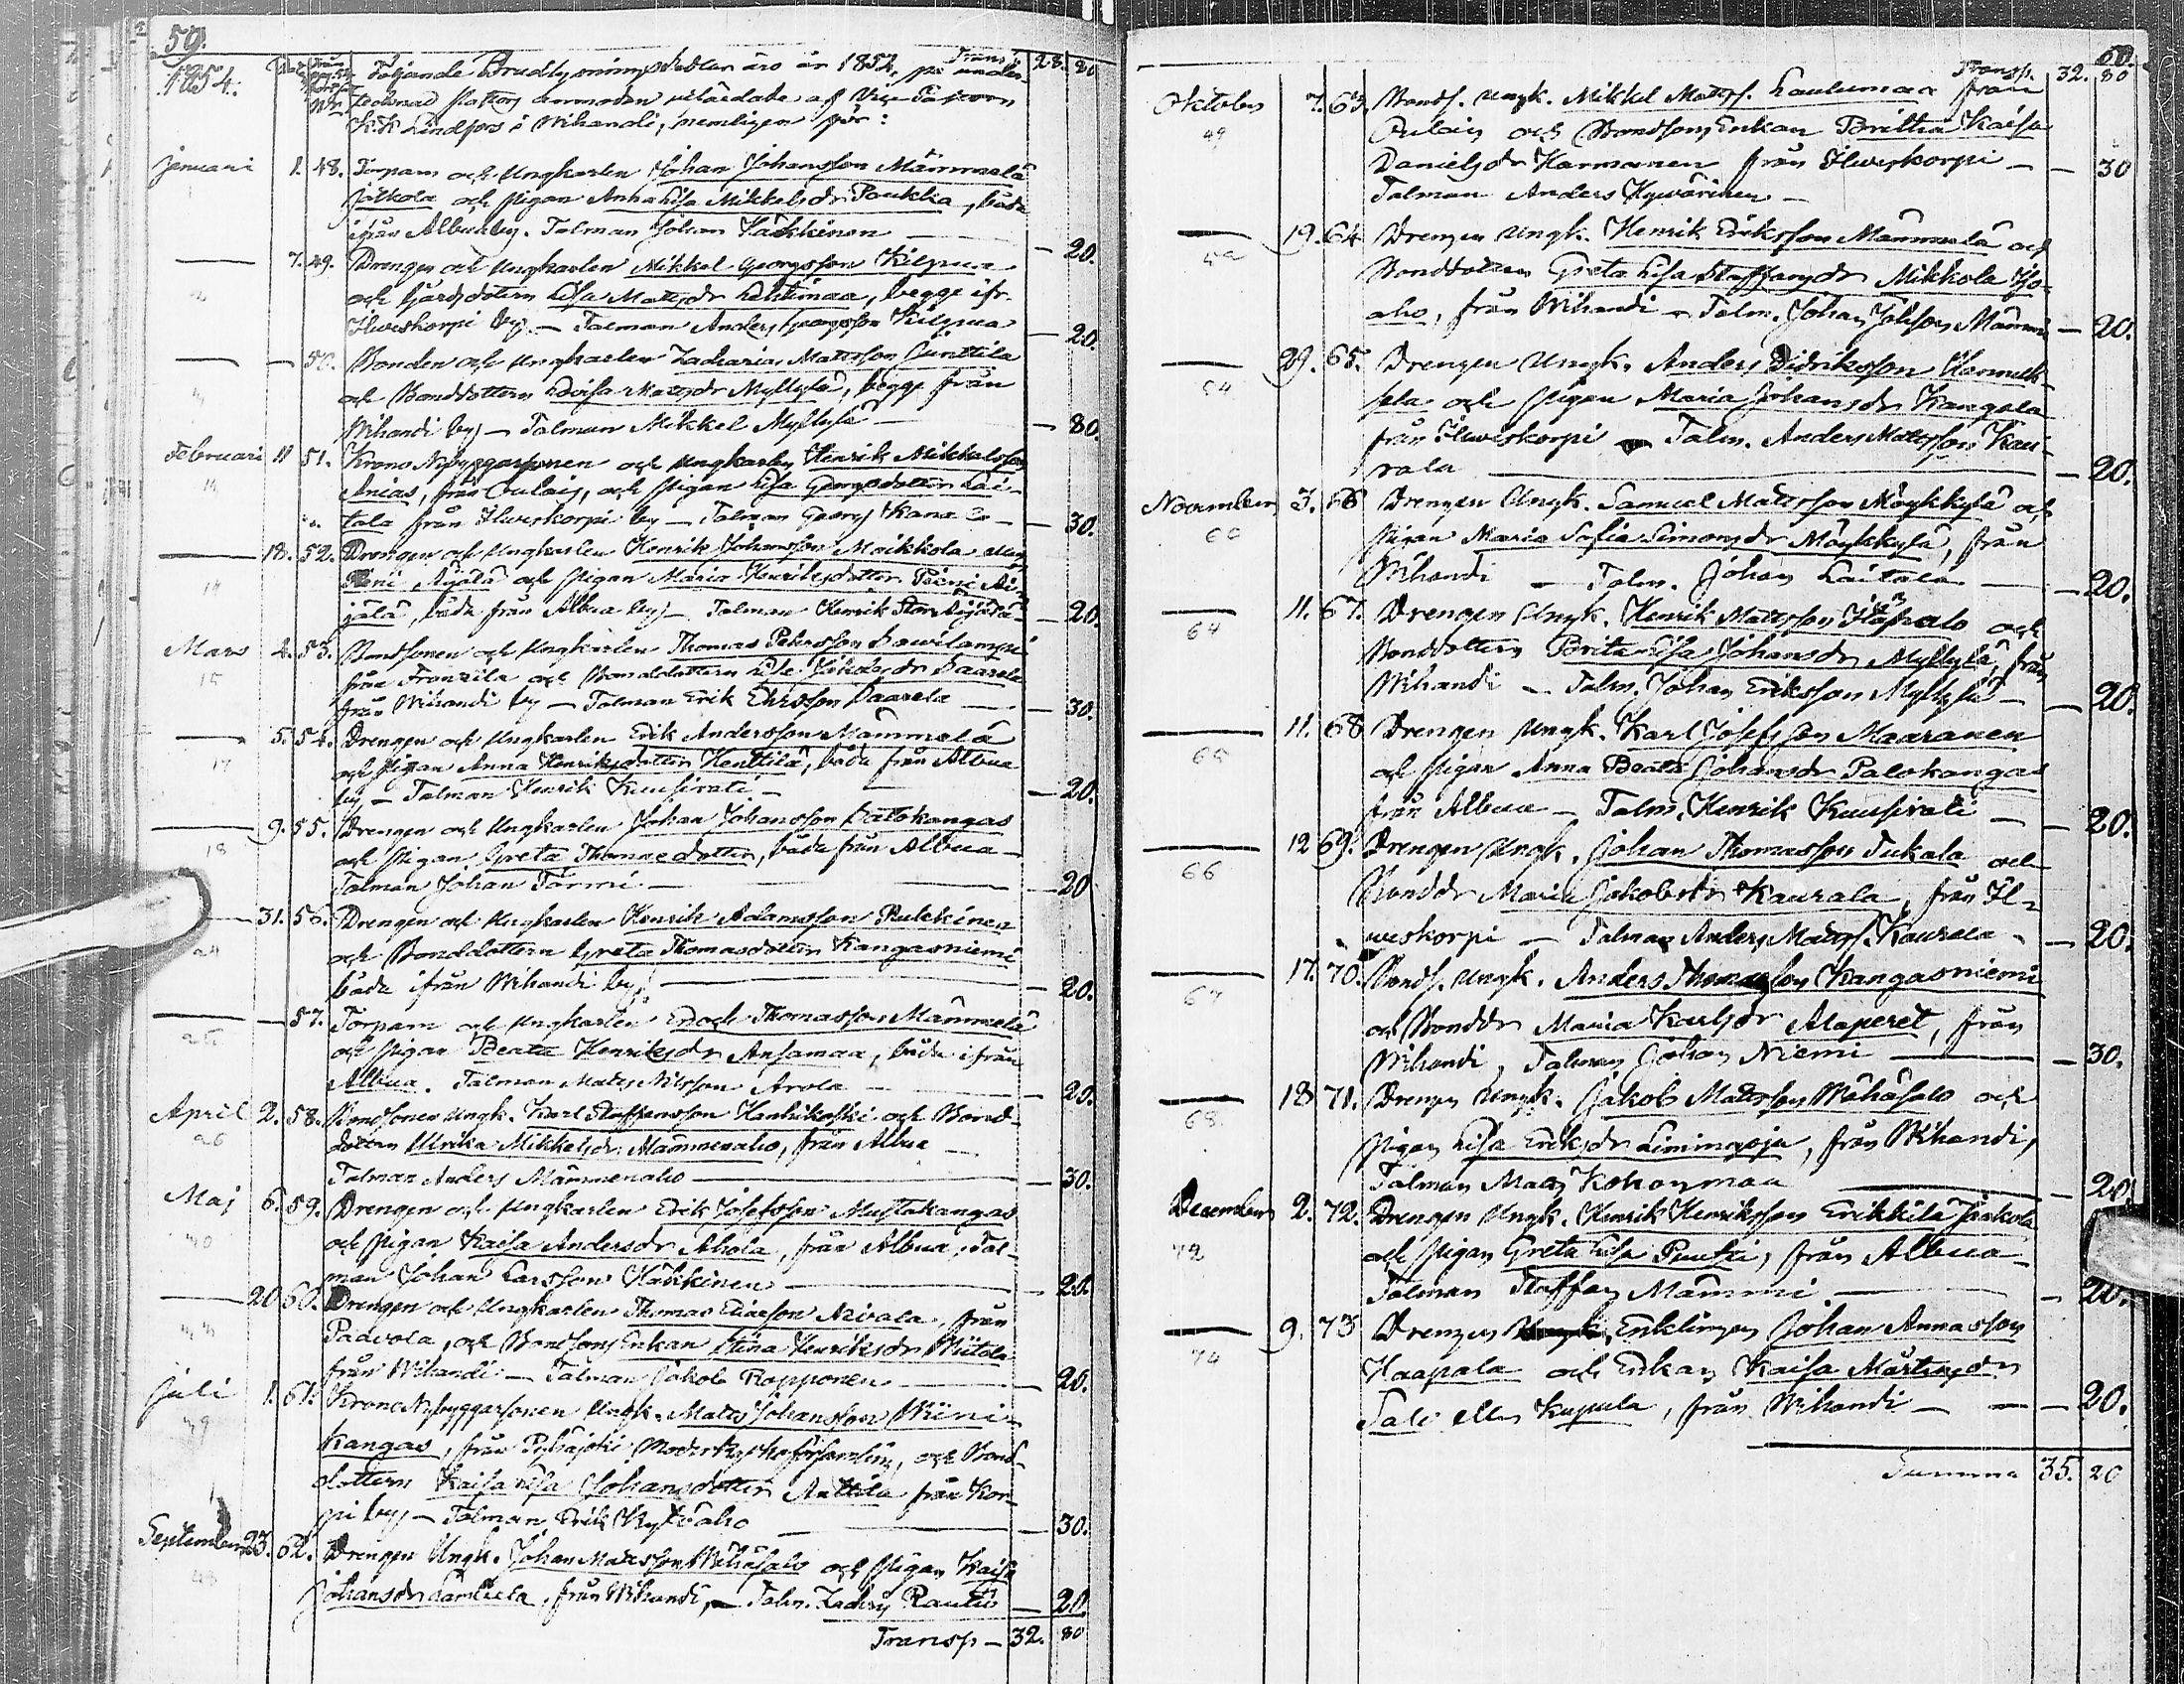 59.
1854. Följande Brudlysningssedlar äro år 1854, på under- Transp. 28. 80
tecknad Pastors anmodan utfärdade af Vice Pastorn
K. K. Lindfors i Wihandi, nemligen för:
Januari 1. 48. Torparn och Ungkarlen Johan Johansson Mämmelä
Jolkola och pigan Anna Lisa Mikkelsdr Paukka, båda
ifrån Albua by. Talman Johan Häkkinen — 20.
— 7. 49. Drengen och Ungkarlen Mikkel Georgsson Kilpua
och Gårdsdottern Lisa Mattsdr Lehtimaa, begge ifr.
Ilweskorpi by. — Talman Anders Georgsson Kilpua — 20.
— — 50. Bonden och Ungkarlen Zacharias Mattsson Junttila
och Bonddottern Lovisa Mattsdr Myllylä, begge från
Wihandi by — Talman Mikkel Myllylä — 80.
Februari 11 51. Krono Nybyggarsonen och Ungkarlen Henrik Mikkelsson
Anias, från Oulais, och pigan Lisa Georgsdotter Lai-
tala från Ilweskorpi by — Talman Georg — 30.
— 18. 52. Drengen och Ungkarlen Henrik Johansson Moikkola
Pieni Äijälä och pigan Maria Henriksdotter Pieni Äi-
jälä, båda från Albua by — Talman Henrik Stor Äijälä — 20.
Mars 4. 53. Bondsonen och Ungkarlen Thomas Petersson Sawilampi
från Frantsila och Bonddottern Lisa Jakobsdr Saarela
från Wihandi by — Talman Erik Ericsson Saarela — 30.
— 5. 54. Drengen och Ungkarlen Erik Andersson Mämmelä
och pigan Anna Henriksdotter Henttilä, båda från Albua
by, — Talman Henrik Kuusirati — 20.
— 9. 55. Drengen och Ungkarlen Johan Johansson Palokangas
och pigan Greta Thomasdotter, båda från Albua —
Talman Johan Tormi — 20
— 31. 56. Drengen och Ungkarlen Henrik Adamsson Pulkkinen
och Bonddottern Greta Thomasdotter Kangasniemi
båda ifrån Wihandi by. — 20.
— — 57. Torparn och Ungkarlen Enoch Thomasson Mämmelä
och pigan Beata Henriksdr Ansamaa, båda ifrån
Albua. Talman Matts Nilsson Arola — 20.
April 2. 58. Bondsonen Ungk. Karl Staffansson Hanhikoski och Bond-
dottern Ulrika Mikkelsdr. Mämmenaho, från Albua —
Talman Anders Mämmenaho — 30.
Maj 6. 59. Drengen och Ungkarlen Erik Josefsson Mustakangas
och pigan Kaisa Andersdr Ahola, från Albua, Tal-
man Johan Larsson Häkkinen — 20.
— 20 60. Drengen och Ungkarlen Thomas Ericsson Nivala, från
Padvola, och Bondsons Enkan Stina Henriksdr Wiitala
från Wihandi — Talman Jakob Ropponen — 20.
Juli 1. 61. Krono Nybyggarsonen Ungk. Matts Johansson Wiini-
kangas, från Pyhäjoki Moderkyrkoförsamling, och Bond-
dottern Kaisa Lisa Johansdotter Anttila från Kor-
pi by — Talman Erik Kytöaho — 30.
September 23. 62. Drengen Ungk. Johan Mattsson Wähäsalo och pigan Kaisa
Johansdr, från Wihandi, — Talm. Zachris Rautio — 20.
Transp — 32. 80
60.
Transp. 32. 80
Oktober 7. 63. Bonds. Ungk. Mikkel Mattss. Laulumaa från
49
Oulais och Bondsons Enkan Britha Kaisa
Danielsdr Karmanen från Ilweskorpi — 30
Talman Anders Hyvärinen —
— 19. 64 Drengen Ungk. Henrik Eriksson Mämmelä och
Bonddottern Greta Lisa Staffansdr Mikkola Iso-
aho, från Wihandi — Talm. Johan Johsson Mämmi — 20.
— 29. 65. Drengen Ungk. Anders Didriksson
54
och pigan Maria Johansdr Kangola
från Ilweskorpi — Talm. Anders Mattsson Kau-
rala — 20.
November 3. 66 Drengen Ungk. Samuel Mattsson Möykkylä och
60
pigan Maria Sofia Simonsdr Möykkylä, från
Wihandi — Talm. Johan Laitala — 20.
— 11. 67. Drengen Ungk. Henrik Mattsson och
64
Bonddottern Brita Lisa Johansdr Myllylä, från
Wihandi — Talm. Johan Eriksson Myllylä — 20.
— 11. 68 Drengen Ungk. Karl Josefsson Maaranen
65
och pigan Anna Beata Johansdr Palokangas
från Albua — Talm. Henrik Kuusirati — 20.
— 12 69. Drengen Ungk. Johan Thomasson Tukala och
66
Bonddr Maria Jakobsdr Kaurala, från Il-
weskorpi — Talman Anders Mattss. Kaurala — 20.
— 17. 70. Bonds. Ungk. Anders Thomasson Kangasniemi
67
och Bonddr Maria Karlsdr Alaperet, från
Wihandi, Talman Johan Niemi — 30.
— 18 71. Drengen Ungk. Jakob Mattsson Wähäsalo och
68.
pigan Lisa Eriksdr Liminoja, från Wihandi,
Talman Matts Kohonmaa — 20.
December 2. 72. Drengen Ungk. Henrik Henriksson Erikkilä Jaakola
72
och pigan Greta Lisa Puutsi, från Albua —
Talman Staffan Mämmi — 20.
— 9. 73 Drengen Enklingen Johan Annasson
74
Haapala och Enkan Kaisa Mårtensdr
Tali eller Kupula, från Wihandi — — 20.
Summa 35. 20